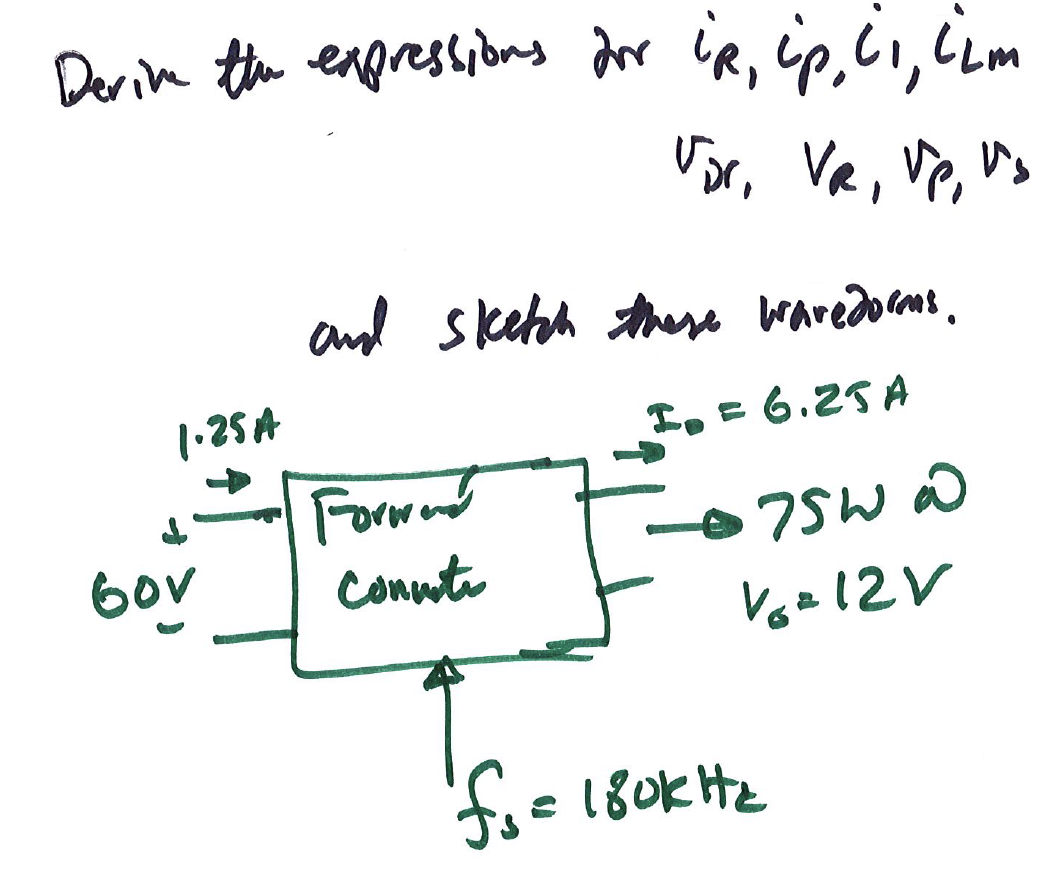 Derive the expressions for iR, ip, i1, iLm
vDr, VR, vp, vs
and sketch these waveforms.
1.25A
I0 = 6.25A
Forward
+
60V
-
75W @
converter
V0 = 12V
fs = 180kHz